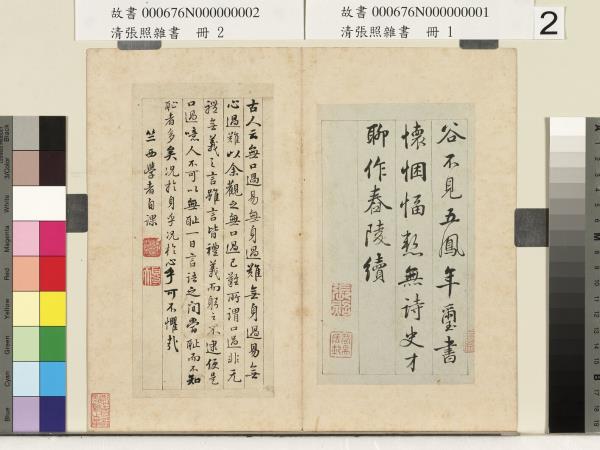 故書 000676N000000002
清張照雜書 冊 2
故書 000676N000000001
清張照雜書 冊 1
2
谷不見五鳳年璽書
懷悃愊愁無詩史才
聊作舂陵續
古人云無口過易無身過難無身過易無
心過難以余觀之無口過已難所謂口過非元
禮無義之言雖言皆禮義而躬之不逮便是
口過噫人不可以無恥一日言語之間當恥而不知
恥者多矣況於身乎況於心乎可不懼哉
竺西學者自課